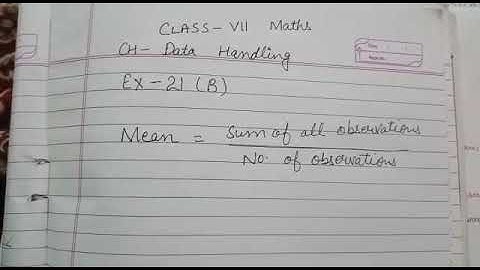 CLASS - VII Maths
CH - Data Handling
Ex - 21 (B)
Mean = Sum of all observations
No. of observations